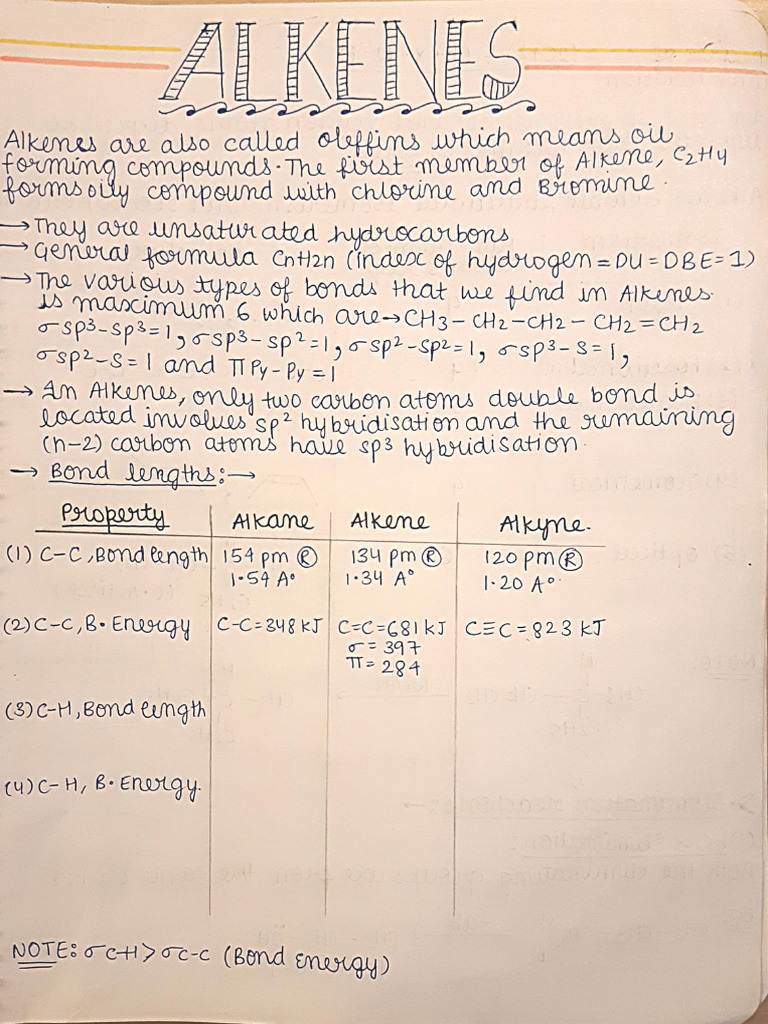 ALKENES
Alkenes are also called oleffins which means oil
forming compounds. The first member of Alkene, C2H4
forms oily compound with chlorine and Bromine.
→ They are unsaturated hydrocarbons
→ General formula CnH2n (index of hydrogen = DU = DBE = 1)
→ The various types of bonds that we find in Alkenes.
is maximum 6 which are → CH3-CH2-CH2-CH2=CH2
σsp³-sp³=1, σsp³-sp²=1, σsp²-sp²=1, σsp³-s=1,
σsp²-s=1 and πPy-Py=1
→ In Alkenes, only two carbon atoms double bond is
located involves sp² hybridisation and the remaining
(n-2) carbon atoms have sp3 hybridisation.
→ Bond lengths:→
Property Alkane Alkene Alkyne.
(1) C-C, Bond length 154 pm Ⓡ 134 pm Ⓡ 120 pm Ⓡ
1.54 A° 1.34 A° 1.20 A°
(2) C-C, B. Energy C-C=348 kJ C=C=681 kJ C≡C=823 kJ
σ=397
π=284
(3) C-H, Bond length
(4) C-H, B. Energy.
NOTE: σC-H > σC-C (Bond Energy)